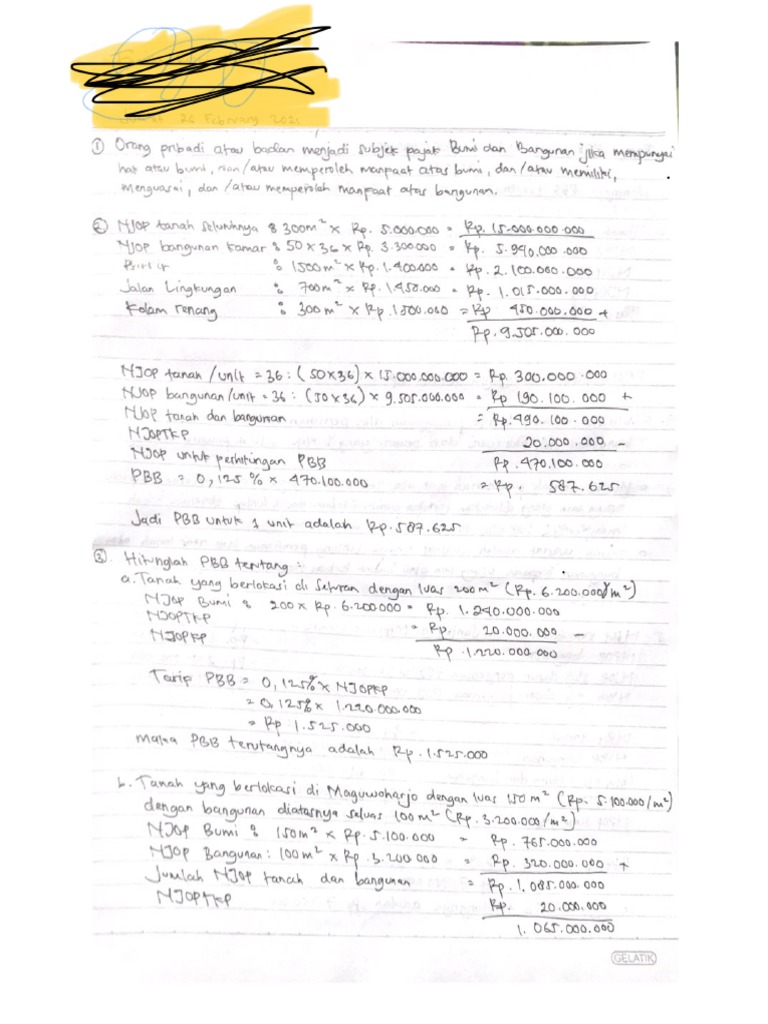 26 February 2021
① Orang pribadi atau badan menjadi subjek pajak Bumi dan Bangunan jika mempunyai
hak atau bumi, dan/atau memperoleh manfaat atas bumi, dan/atau memiliki,
menguasai, dan/atau memperoleh manfaat atas bangunan.
② NJOP tanah seluruhnya : 300m² x Rp. 5.000.000 = Rp. 15.000.000.000
NJOP bangunan kamar : 50 x 36 x Rp. 3.300.000 = Rp. 5.940.000.000
: 1500m² x Rp. 1.400.000 = Rp. 2.100.000.000
Jalan Lingkungan : 700m² x Rp. 1.450.000 = Rp. 1.015.000.000
Kolam renang : 300 m² x Rp. 1.500.000 = Rp 450.000.000 +
Rp. 9.505.000.000
NJOP tanah /unit = 36 : (50x36) x 15.000.000.000 = Rp. 300.000.000
NJOP bangunan/unit = 36 : (50x36) x 9.505.000.000 = Rp 190.100.000 +
NJOP tanah dan bangunan = Rp. 490.100.000
NJOPTKP 20.000.000 -
NJOP untuk perhitungan PBB Rp. 470.100.000
PBB = 0,125 % x 470.100.000 = Rp. 587.625
Jadi PBB untuk 1 unit adalah Rp. 587.625
③ Hitunglah PBB terutang :
a. Tanah yang berlokasi di Seturan dengan luas 200 m² (Rp. 6.200.000/m²)
NJOP Bumi : 200 x Rp. 6.200.000 = Rp. 1.240.000.000
NJOPTKP = Rp. 20.000.000 -
NJOPKP Rp. 1.220.000.000
Tarip PBB = 0,125% x NJOPKP
= 0,125% x 1.220.000.000
= Rp 1.525.000
maka PBB terutangnya adalah Rp. 1.525.000
b. Tanah yang berlokasi di Maguwoharjo dengan luas 150 m² (Rp. 5.100.000/m²)
dengan bangunan diatasnya seluas 100 m² (Rp. 3.200.000/m²)
NJOP Bumi : 150m² x Rp. 5.100.000 = Rp. 765.000.000
NJOP Bangunan : 100m² x Rp. 3.200.000 = Rp. 320.000.000 +
Jumlah NJOP tanah dan bangunan = Rp. 1.085.000.000
NJOPTKP Rp. 20.000.000
1.065.000.000
GELATIK